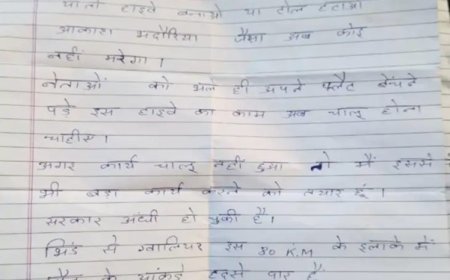 हाइवे बनाओ या टोल हटाओ
आकाश भदौरिया जैसा अब कोई
नहीं मरेगा।
नेताओं को भले ही अपने फ्लैट बेचने
पड़े इस हाइवे का काम अब चालू होना
चाहीए।
अगर कार्य चालू नहीं हुआ तो मैं इससे
भी बड़ा कार्य करने को तैयार हूं।
सरकार अंधी हो चुकी है।
भिंड से ग्वालियर इस 80 K.M के इलाके में
के आंकड़े पार है